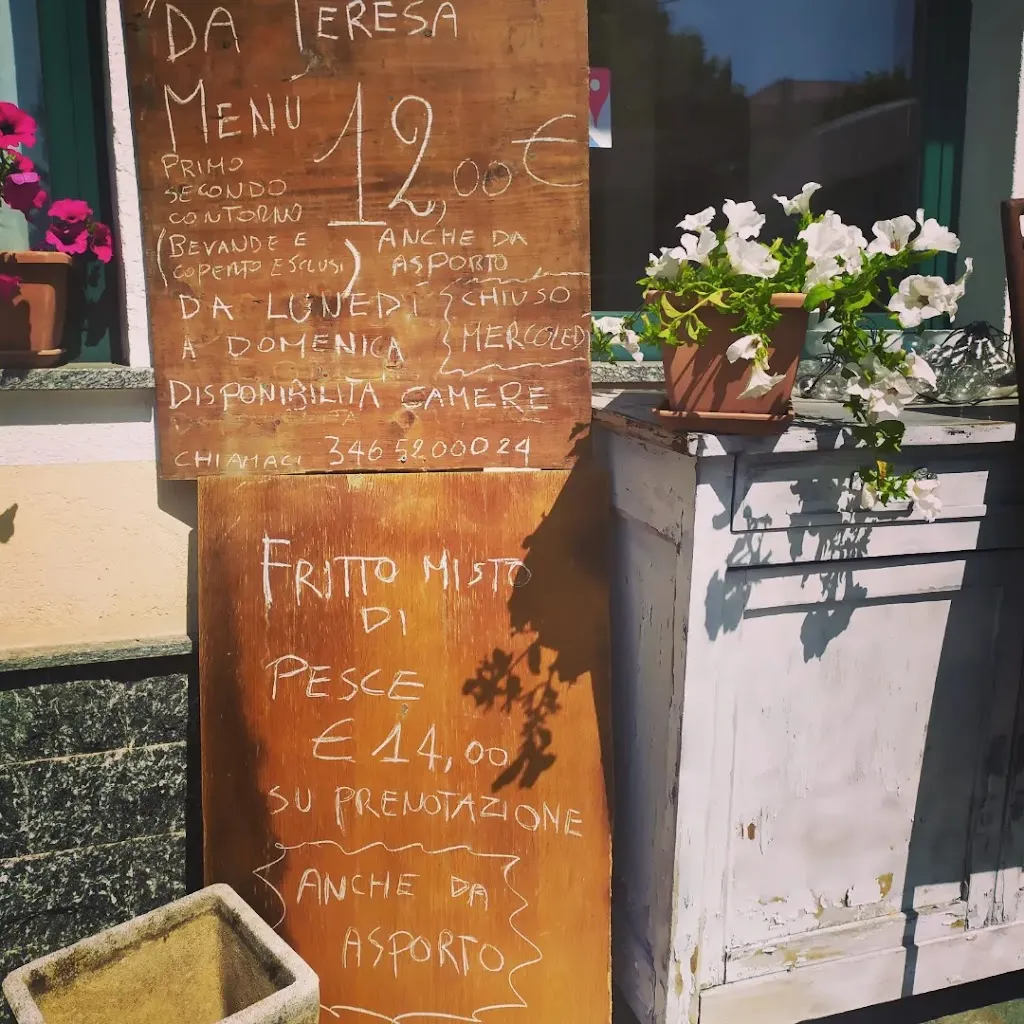 "DA TERESA
MENU 12,00 €
PRIMO
SECONDO
CONTORNO
(BEVANDE E
COPERTO ESCLUSI)
ANCHE DA
ASPORTO
DA LUNEDI
A DOMENICA
CHIUSO
MERCOLEDI
DISPONIBILITA CAMERE
CHIAMACI 3465200024
FRITTO MISTO
DI
PESCE
€ 14,00
SU PRENOTAZIONE
ANCHE DA
ASPORTO